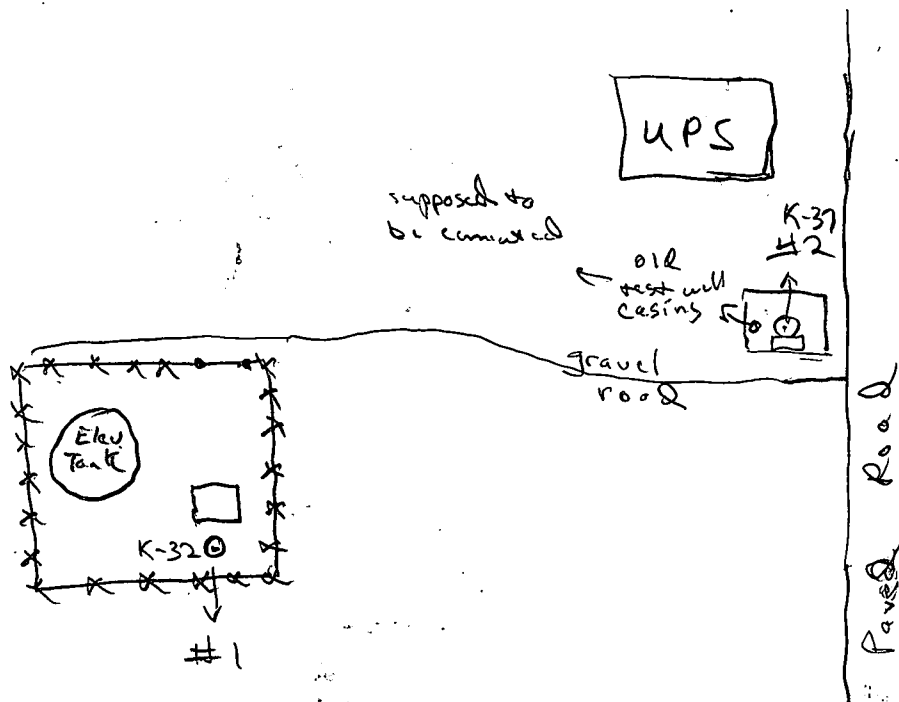 UPS
supposed to
be cemented
K-37
#2
old
test well
casing
gravel
road
Elev
Tank
K-32
#1
Paved Road